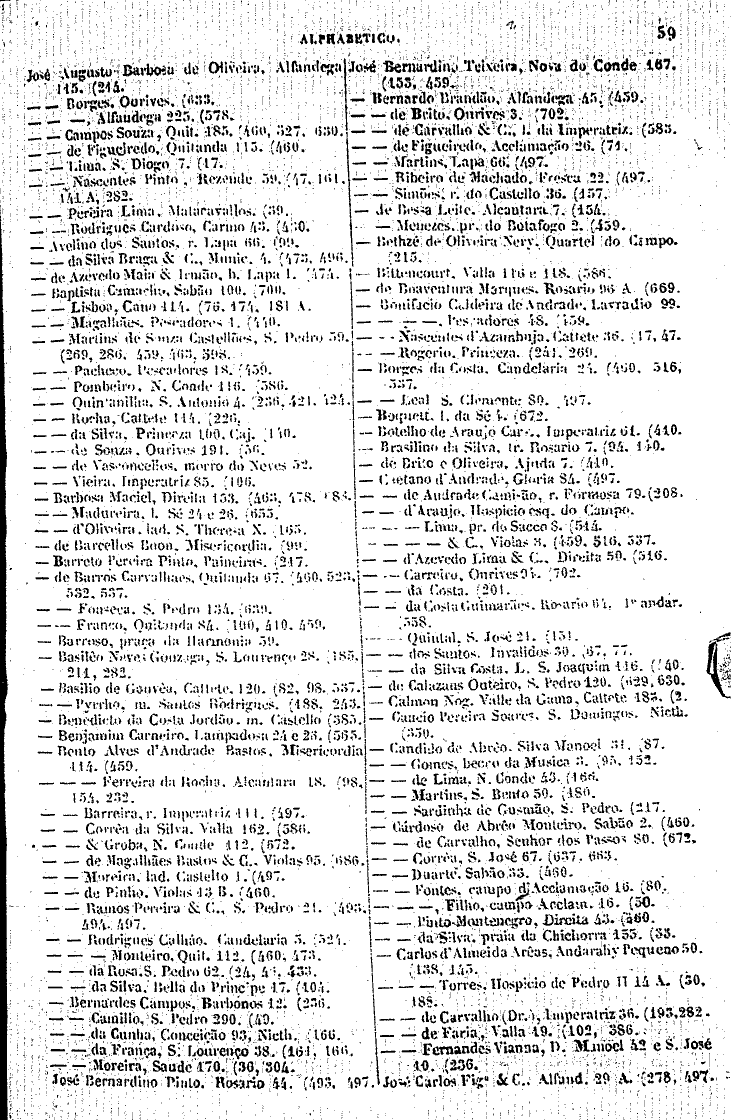 ALPHABETICO.
59
José Augusto Barbosa de Oliveira, Alfandega
115. (214.
— — Borges, Ourives. (633.
— — —, Alfandega 225. (578.
— — Campos Souza, Quit. 185. (460, 527, 630.
— — de Figueiredo, Quitanda 115. (460.
— — Lima, S. Diogo 7. (17.
— — Nascentes Pinto, Rezende 59. (47, 161,
141 A, 282.
— — Pereira Lima, Matacavallos. (59.
— — Rodrigues Cardoso, Carmo 43. (430.
— Avelino dos Santos, r. Lapa 66. (99.
— — da Silva Braga & C., Munic. 4. (473, 496.
— de Azevedo Maia & Irmão, b. Lapa 1. (474.
— Baptista Camacho, Sabão 100. (700.
— — Lisboa, Cano 114. (76, 174, 181 A.
— — Magalhães, Pescadores 1. (440.
— — Martins de Souza Castellões, S. Pedro 59.
(269, 286, 459, 463, 598.
— — Pacheco, Pescadores 18. (459.
— — Pombeiro, N. Conde 116. (586.
— — Quintanilha, S. Antonio 4. (236, 421, 424.
— — Rocha, Cattete 114. (226.
— — da Silva, Princeza 100, Caj. (140.
— — de Souza, Ourives 191. (56.
— — de Vasconcellos, morro do Neves 52.
— — Vieira, Imperatriz 85. (106.
— Barbosa Maciel, Direita 153. (463, 478,
— — Madureira, l. Sé 24 e 26. (655.
— — d'Oliveira, lad. S. Theresa X. (165.
— de Barcellos Buon, Misericordia. (99.
— Barreto Pereira Pinto, Paineiras. (217.
— de Barros Carvalhaes, Quitanda 67. (460, 523,
532, 537.
— — Fonseca, S. Pedro 134. (639.
— — Franco, Quitanda 84. (100, 410, 459.
— Barroso, praça da Harmonia 59.
— Basilêo Neves Gonzaga, S. Lourenço 28. (185,
211, 282.
— Basilio de Gouvêa, Cattete, 120. (82, 98, 537.
— — Pyrrho, m. Santos Rodrigues. (188, 243.
— Benedicto da Costa Jordão, m. Castello (385.
— Benjamim Carneiro, Lampadosa 24 e 26. (565.
— Bento Alves d'Andrade Bastos, Misericordia
114. (459.
— — — Ferreira da Rocha, Alcantara 18. (98,
154, 232.
— — Barreira, r. Imperatriz 111. (497.
— — Corrêa da Silva, Valla 162. (586.
— — & Groba, N. Conde 112. (672.
— — de Magalhães Bastos & C., Violas 95. (686.
— — Moreira, lad. Castello 1. (497.
— — de Pinho, Violas 13 B. (460.
— — Ramos Pereira & C., S. Pedro 21. (493,
494, 497.
— — Rodrigues Calhão, Candelaria 5. (524.
— — — Monteiro, Quit. 112. (460, 473.
— — da Rosa, S. Pedro 62. (24, 433.
— — da Silva, Bella do Principe 17. (404.
— Bernardes Campos, Barbonos 12. (236.
— — Camillo, S. Pedro 290. (49.
— — da Cunha, Conceição 93, Nicth. (166.
— — da França, S. Lourenço 38. (161, 166.
— — Moreira, Saude 170. (30, 304.
José Bernardino Pinto, Rosario 44. (493, 497.
José Bernardino Teixeira, Nova do Conde 167.
(153, 459.
— Bernardo Brandão, Alfandega 45. (459.
— — de Brito, Ourives 3. (702.
— — de Carvalho & C., l. da Imperatriz. (583.
— — de Figueiredo, Acclamação 26. (71.
— — Martins, Lapa 66. (497.
— — Ribeiro de Machado, Fresca 22. (497.
— — Simões, r. do Castello 36. (157.
— de Bessa Leite, Alcantara 7. (154.
— — Menezes, pr. do Botafogo 2. (459.
— Bethzé de Oliveira Nery, Quartel do Campo.
(215.
— Bittencourt, Valla 116 e 118. (586.
— de Boaventura Marques, Rosario 96 A. (669.
— Bonifacio Caldeira de Andrade, Lavradio 99.
— — — —, Pescadores 48. (459.
— — Nascentes d'Azambuja, Cattete 36. (17, 47.
— — Rogerio, Princeza. (241, 269.
— Borges da Costa, Candelaria 24. (460, 516,
537.
— — Leal S. Clemente 80. (497.
— Boquett, l. da Sé 4. (672.
— Botelho de Araujo Car., Imperatriz 61. (410.
— Brasilino da Silva, tr. Rosario 7. (94, 140.
— de Brito e Oliveira, Ajuda 7. (410.
— Caetano d'Andrade, Gloria 84. (497.
— — de Andrade Camisão, r. Formosa 79. (208.
— — d'Araujo, Hospicio esq. do Campo.
— — — Lima, pr. do Sacco 8. (514.
— — — & C., Violas 8. (459, 516, 537.
— — d'Azevedo Lima & C., Direita 59. (516.
— — Carreiro, Ourives 94. (702.
— — da Costa. (201.
— — da Costa Guimarães, Rosario 64, 1º andar.
(558.
— — Quintal, S. José 21. (151.
— — dos Santos, Invalidos 30. (67, 77.
— — da Silva Costa, L. S. Joaquim 116. (140.
— de Calazans Outeiro, S. Pedro 120. (629, 630.
— Calmon Nog. Valle da Gama, Cattete 183. (2.
— Cancio Pereira Soares, S. Domingos, Nicth.
(350.
— Candido de Abrêo, Silva Manoel 31. (87.
— — Gomes, becco da Musica 3. (95, 152.
— — de Lima, N. Conde 43. (166.
— — Martins, S. Bento 50. (480.
— — Sardinha de Gusmão, S. Pedro. (217.
— Cardoso de Abrêo Monteiro, Sabão 2. (460.
— — de Carvalho, Senhor dos Passos 80. (672.
— — Corrêa, S. José 67. (637, 663.
— — Duarte, Sabão 33. (460.
— — Fontes, campo d'Acclamação 16. (80.
— — —, Filho, campo Acclam. 16. (50.
— — Pinto Montenegro, Direita 43. (460.
— — da Silva, praia da Chichorra 155. (33.
— Carlos d'Almeida Arêas, Andarahy Pequeno 50.
(138, 145.
— — — Torres, Hospicio de Pedro II 14 A. (30,
188.
— — de Carvalho (Dr.), Imperatriz 36. (193, 282.
— — de Faria, Valla 19. (102, 386.
— — Fernandes Vianna, D. Manoel 42 e S. José
10. (236.
José Carlos Figª & C., Alfand. 29 A. (278, 497.